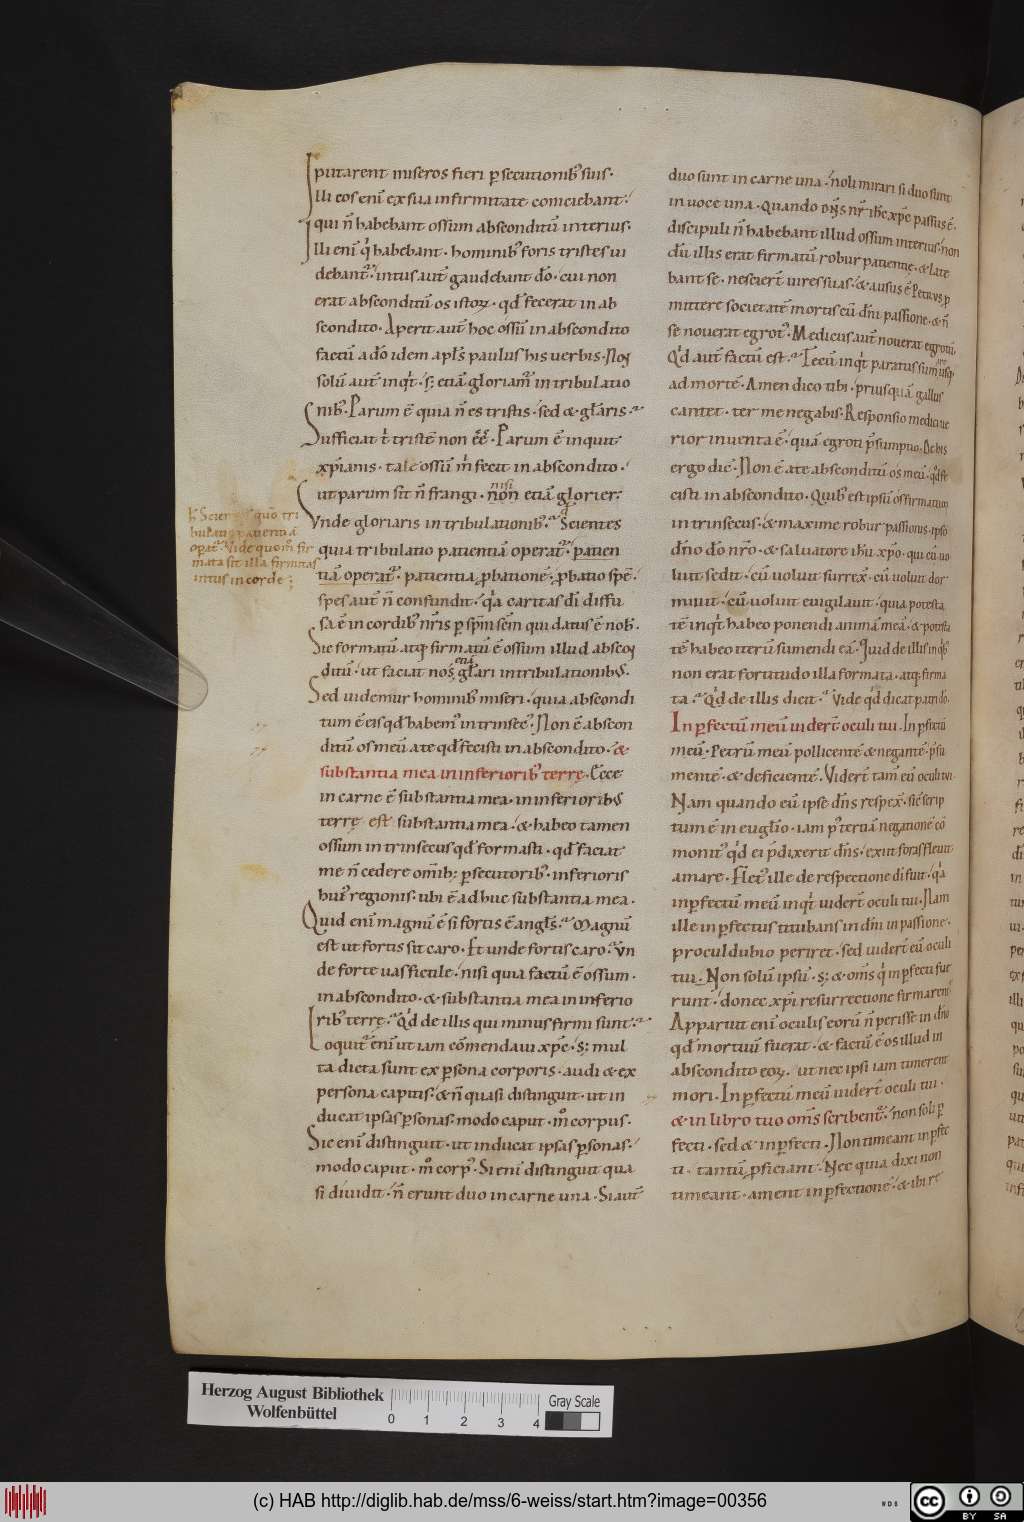 putarent miseros fieri ꝑsecutionib᷒ suis·
Illi eos eni᷒ exsua infirmitate coniciebant·
qui n̄ habebant ossum absconditū interius·
Illi enī q̇ habebant· hominib᷒ foris tristes ui
debant᷒· intus aut̄ gaudebant dō· cui non
erat absconditū os istoꝝ· qđ fecerat in ab
scondito· Aperit aut̄ hoc ossū in abscondito
factū a dō idem apl̄s paulus his uerbis· Noɳ
solū aut̄ inqͥt· s; etiā gloriam᷒ in tribulatio
nib᷒· Parum ē quia n̄ es tristis· sed & gl̄aris·
Sufficiat t̄ tristē non ēē· Parum ē inquit
xp̄ianis· tale ossū m̄ fecit in abscondito·
Sut parum sit n̄ frangi· non nisi etiā glorier;
Vnde gloriaris in tribulationib᷒· Scientes
quia tribulatio patientiā operat᷒· patien
tiā operat᷒· patientia ꝓbationē· ꝓbatio spē·
spes aut̄ n̄ confundit· qͥa caritas dī diffu
sa ē in cordib᷒ nr̄is ꝑ sp̄m sc̄m qui datus ē nob̄·
Sic formatū atq; firmatū ē ossum illud abscoɳ
ditū· ut faciat nos etiā gl̄ari intribulationib᷒·
Sed uidemur hominib᷒ miseri· quia abscondi
tum ē eis qđ habem᷒ intrinsec᷒· Non ē abscon
ditū os meū a te qđ fecisti in abscondito· &
substantia mea in inferiorib᷒ terrę· Ecce
in carne ē substantia mea· in inferiorib᷒
terrę est substantia mea· & habeo tamen
ossum intrinsecus qđ formasti· qđ faciat
me n̄ cedere om̄ib; ꝑsecutorib᷒· inferioris
hui᷒ regionis· ubi ē adhuc substantia mea·
Quid enī magnū ē si fortis ē angl̄s· Magnū
est ut fortis sit caro· Et unde fortis caro· vn
de forte uas fictile· nisi quia factū ē ossum·
in abscondito· & substantia mea in inferio
rib᷒ terrę· Qͥd de illis qui minus firmi sunt·
Loquit᷒ enī ut iam cōmendaui xp̄c· s; mul
ta dicta sunt ex ꝑsona corporis· audi & ex
persona capitis· & n̄ quasi distinguit· ut in
ducat ipsas ꝑsonas· modo caput· m̊ corpus·
Sic enī distinguit· ut inducat ipsas ꝑsonas·
modo caput· m̊ corp᷒· Si enī distinguit qua
si diuidit· n̄ erunt duo in carne una· Si aut̄
h̄ Scientes quō tri
bulatio patientiā
opat᷒· Vide quom̊ fir
mata sit illa firmitas
intus in corde;
duo sunt in carne una· noli mirari si duo sunt
in uoce una· Quando dn̄s nr̄ ih̄c xp̄c passus ē·
discipuli n̄ habebant illud ossum interius· non
dū illis erat firmatū robur patientię· & late
bant se· nescier̄t uires suas· & ausus ē Petrus ꝓ
mittere societatē mortis eū dn̄i passione· & n̄
se nouerat egrot᷒· Medicus aut̄ nouerat egrotū·
Qͥd aut̄ factū est· Tecū inqͥt paratus sum ire usq;
ad mortē· Amen dico tibi· priusquā gallus
cantet· ter me negabis· Responsio medici ue
rior inuenta ē· quā egroti p̄sumptio· Debis
ergo diē· Non ē a te absconditū os meū· qđ fe
cisti in abscondito· Quib᷒ est ipsū os firmatum
intrinsecus· & maxime robur passionis· ipso
dn̄o dō nr̄o· & saluatore ih̄u xp̄o· qui cū uo
luit sedit· cū uoluit surrex̄· cū uoluit dor
miuit· cū uoluit euigilauit· quia potesta
tē inqͥt habeo ponendi animā meā· & potesta
tē habeo iterū sumendi eā· Quid de illis inqͥb᷒
non erat fortitudo illa formata· atq; firma
ta· Qͥd de illis dicit· Vide qͥd dicat patri dō·
Inꝑfectū meū uider̄t oculi tui· Inꝑfectū
meū· Petrū meū pollicentē & negantē· p̄su
mentē· & deficientē· Vider̄t tam̄ eū oculi tui·
Nam quando eū ipse dn̄s respex̄· sic̄ scrip
tum ē in eugl̄io· iam p᷒ tertiā negationē cō
monit᷒ qđ ei p̄dixerit dn̄s· exiit foras fleuit
amare· Flet᷒ ille de respectione dī fuit· qͥa
inꝑfectū meū inqͥt uider̄t oculi tui· Nam
ille inꝑfectus titubans in dn̄i in passione·
procul dubio periret· sed uider̄t eū oculi
tui· Non solū ipsū· s; & om̄s qͥ inꝑfecti fue
runt· donec xp̄i resurrectione firmarent᷒
Apparuit enī oculis eorū n̄ perisse in dn̄o
qđ mortuū fuerat· & factū ē os illud in
abscondito eoꝝ· ut nec ipsi iam timerent
mori· Inꝑfectū meū uider̄t oculi tui·
& in libro tuo om̄s scribent᷒· non soli ꝑ
fecti· sed & inꝑfecti· Non timeant inꝑfec
ti· tantū ꝓficiant· Nec quia dixi non
timeant· ament inꝑfectionē· & ibi re
Herzog August Bibliothek
Wolfenbüttel
0 1 2 3 4
Gray Scale
(c) HAB http://diglib.hab.de/mss/6-weiss/start.htm?image=00356
WDB
cc BY SA